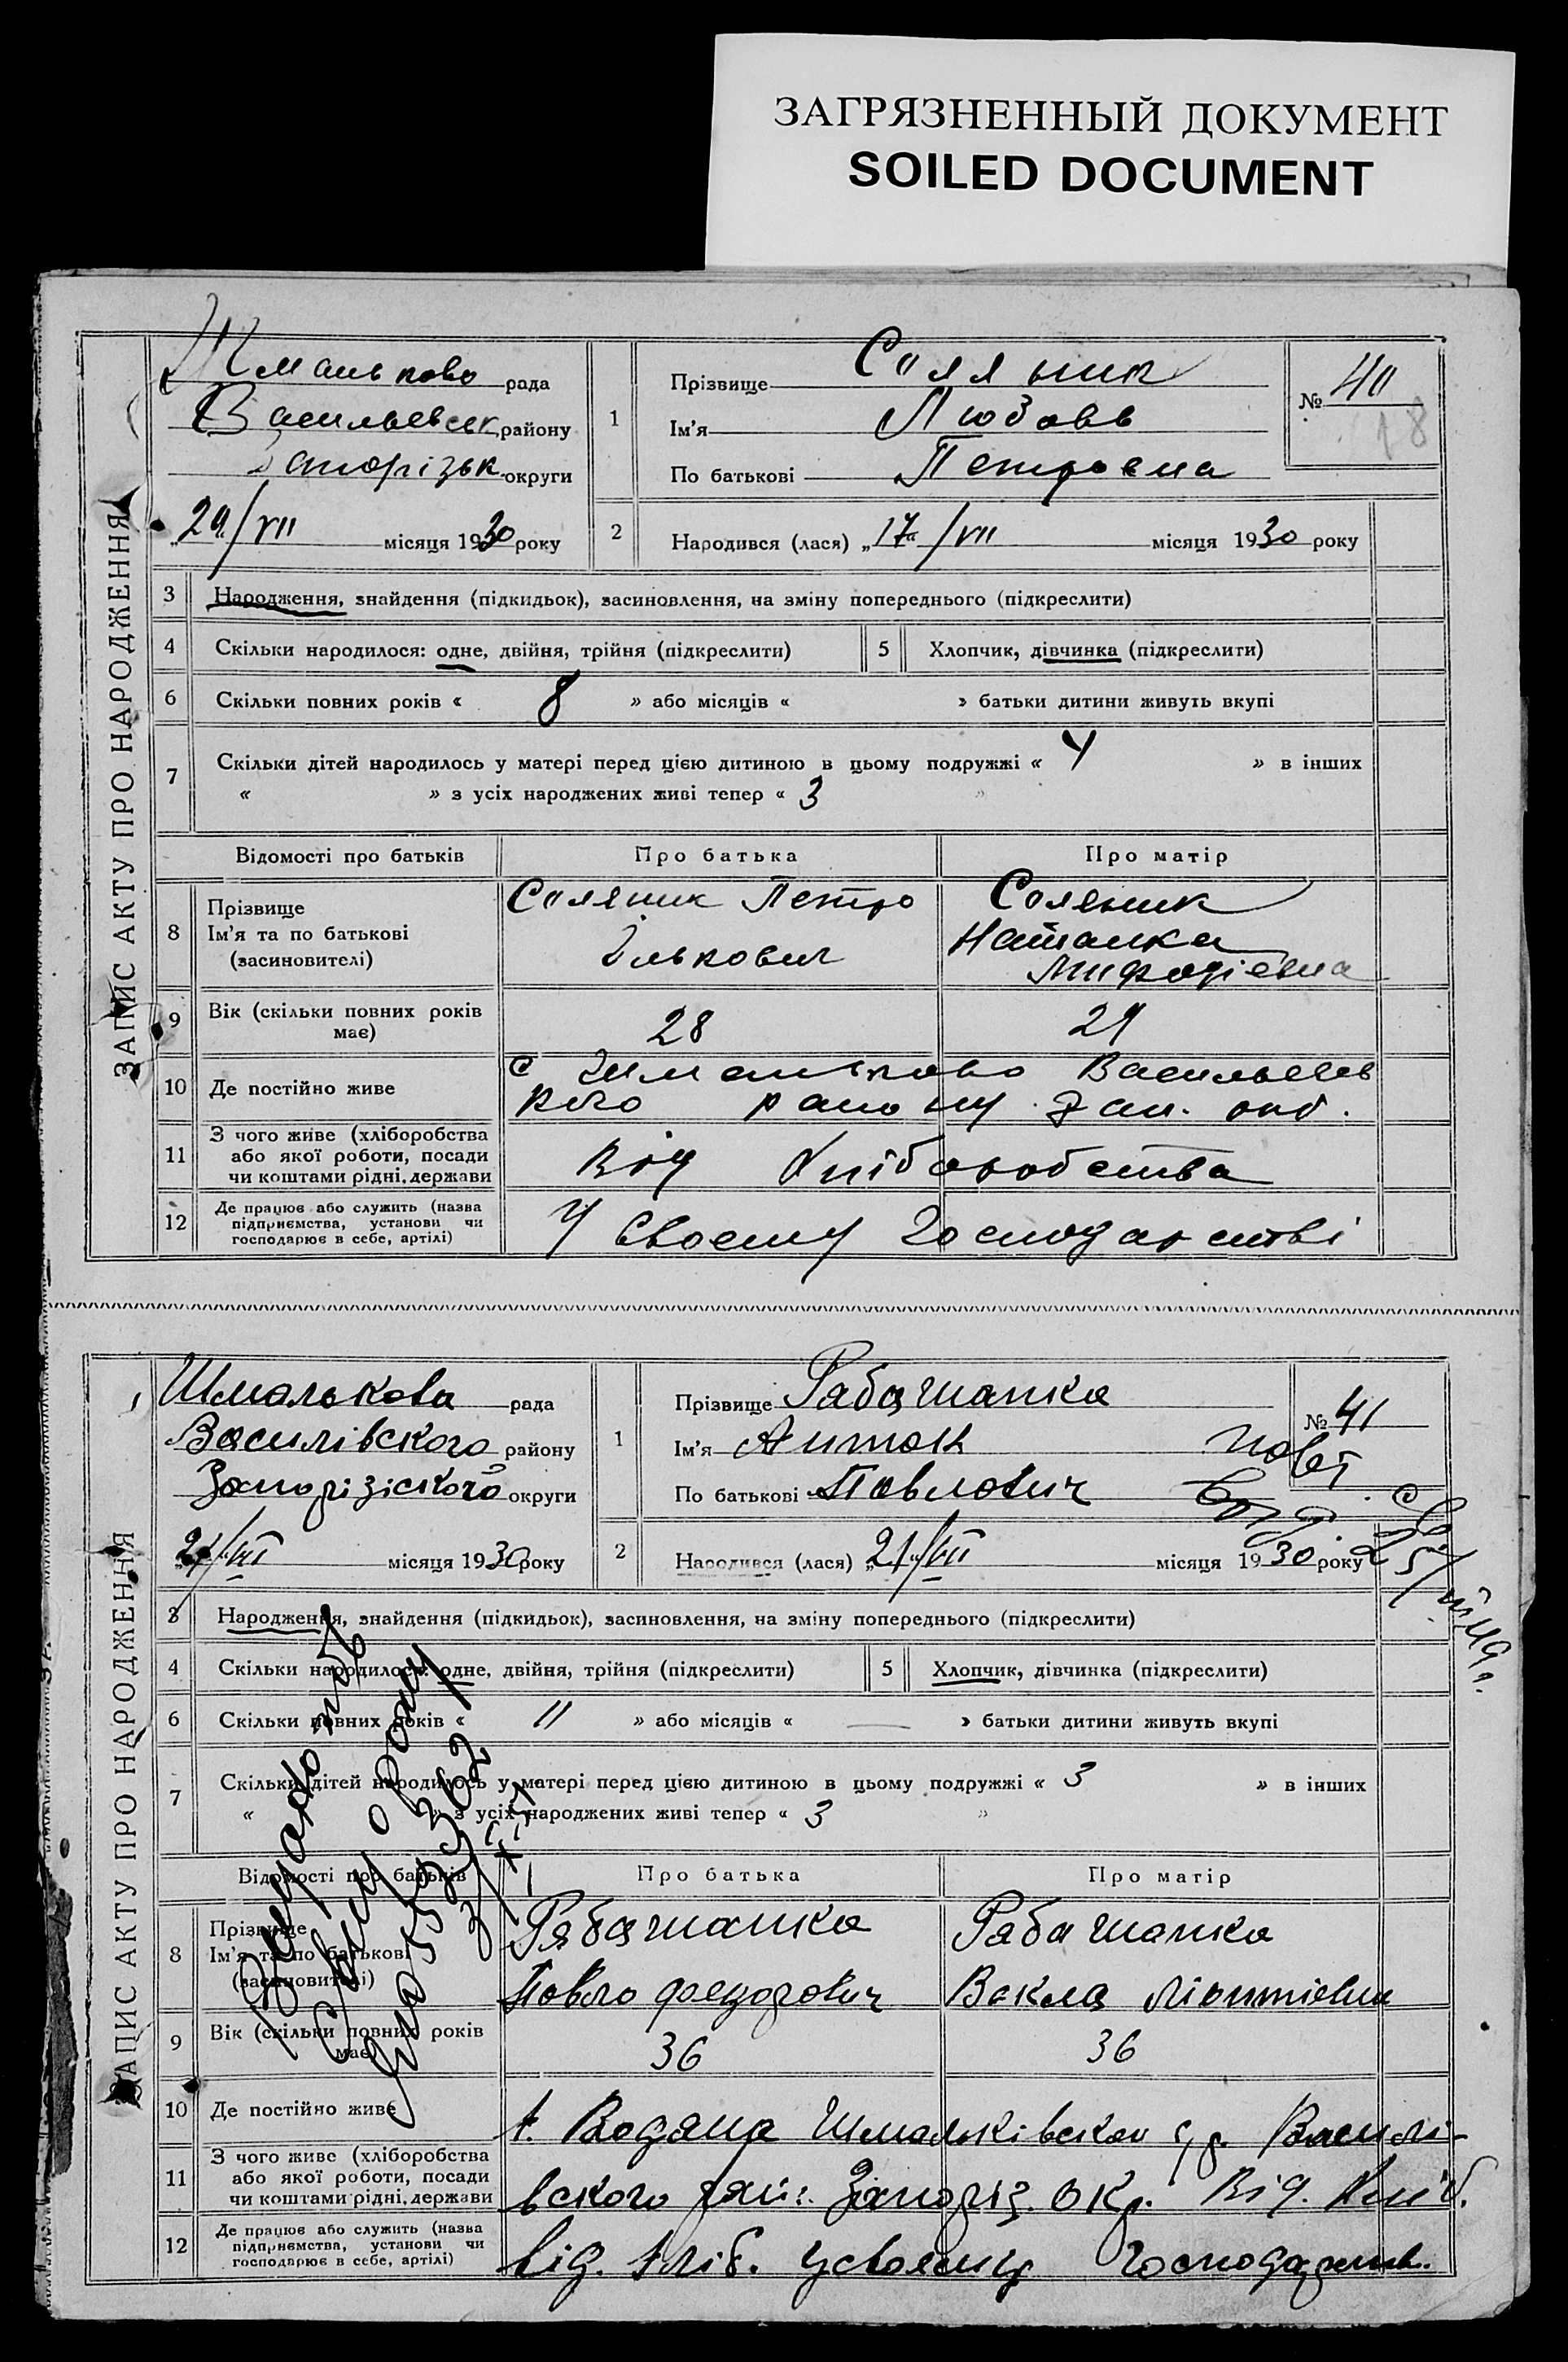 ЗАГРЯЗНЕННЫЙ ДОКУМЕНТ
SOILED DOCUMENT
ЗАПИС АКТУ ПРО НАРОДЖЕННЯ
Шмальково рада
Васильевск району
Запорізьк округи
29/VII місяця 1930 року
1
Прізвище Соляник
Ім'я Любовь
По батькові Петровна
№ 40
18
2
Народився (лася) „17"/VII місяця 1930 року
3 Народження, знайдення (підкидьок), засиновлення, на зміну попереднього (підкреслити)
4 Скільки народилося: одне, двійня, трійня (підкреслити) 5 Хлопчик, дівчинка (підкреслити)
6 Скільки повних років « 8 » або місяців « » батьки дитини живуть вкупі
7 Скільки дітей народилось у матері перед цією дитиною в цьому подружжі « 4 » в інших
« » з усіх народжених живі тепер « 3 »
Відомості про батьків Про батька Про матір
8 Прізвище
Ім'я та по батькові
(засиновителі)
Соляник Петро
Ількович
Соляник
Наталка
Мифодіевна
9 Вік (скільки повних років
має)
28 29
10 Де постійно живе
с Шмальково Васильевс
кого району Зап. окр.
11 З чого живе (хліборобства
або якої роботи, посади
чи коштами рідні, держави
Від Хліборобства
12 Де працює або служить (назва
підприємства, установи чи
господарює в себе, артілі)
У своему господарстві
ЗАПИС АКТУ ПРО НАРОДЖЕННЯ
Шмалькова рада
Василівского району
Запорізіского округи
21/VII місяця 1930 року
1
Прізвище Рабашапка
Ім'я Антон
По батькові Павлович
№ 41
2
Народився (лася) „21"/VII місяця 1930 року
3 Народження, знайдення (підкидьок), засиновлення, на зміну попереднього (підкреслити)
4 Скільки народилося: одне, двійня, трійня (підкреслити) 5 Хлопчик, дівчинка (підкреслити)
6 Скільки повних років « 11 » або місяців « — » батьки дитини живуть вкупі
7 Скільки дітей народилось у матері перед цією дитиною в цьому подружжі « 3 » в інших
« » з усіх народжених живі тепер « 3 »
Відомості про батьків Про батька Про матір
8 Прізвище
Ім'я та по батькові
(засиновителі)
Рябашапка
Павло Федорович
Рабашапка
Векла
9 Вік (скільки повних років
має)
36 36
10 Де постійно живе
х. Водяна Шмальківскои с/р. Василі-
11 З чого живе (хліборобства
або якої роботи, посади
чи коштами рідні, держави
вского рай. Запоріз. Окр. Від. Хліб.
12 Де працює або служить (назва
підприємства, установи чи
господарює в себе, артілі)
Від. Хліб. У своему господарств.